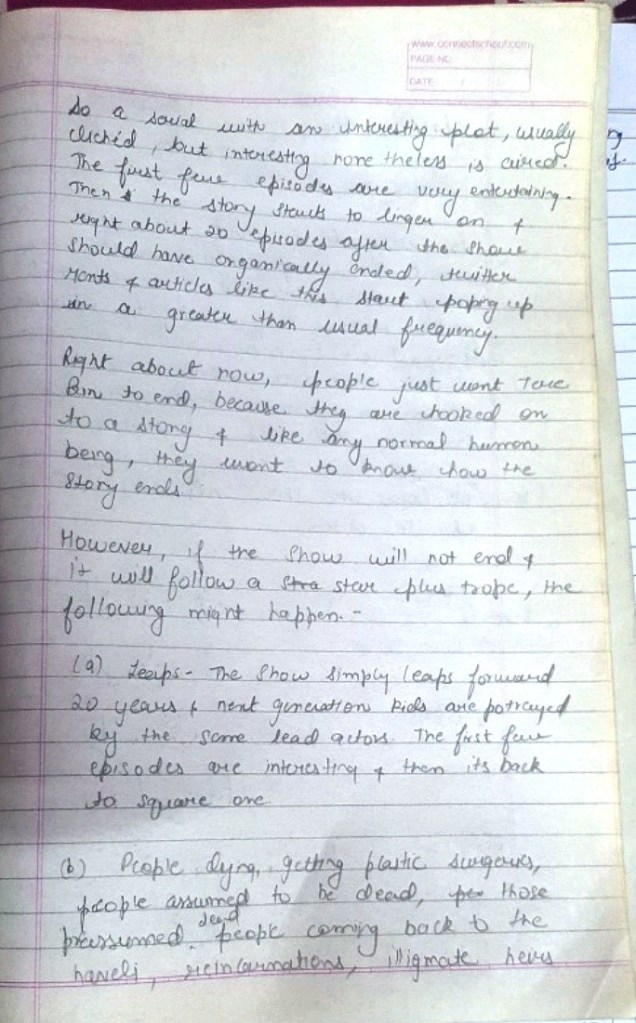 www.connectschool.com
PAGE NO.
DATE
So a soial with an interesting plot, usually
clichéd, but interesting none theless is aired.
The first few episodes are very entertaining.
Then the story starts to linger on &
right about 20 episodes after the show
should have organically ended, twitter
rants & articles like this start popng up
in a greater than usual frequency.
Right about now, people just want Tere
Bin to end, because they are hooked on
to a story & like any normal human
being, they want to know how the
story ends
However, if the show will not end &
it will follow a stra star plus trope, the
following might happen. -
(a) Leaps - The show simply leaps forward
20 years & next generation kids are potrayed
by the same lead actors. The first few
episodes are interesting & then its back
to square one
(b) People dyng, getting plastic surgeries,
people assumed to be dead, pe those
pressumed dead people coming back to the
haveli, reincarnations, illigmate heirs